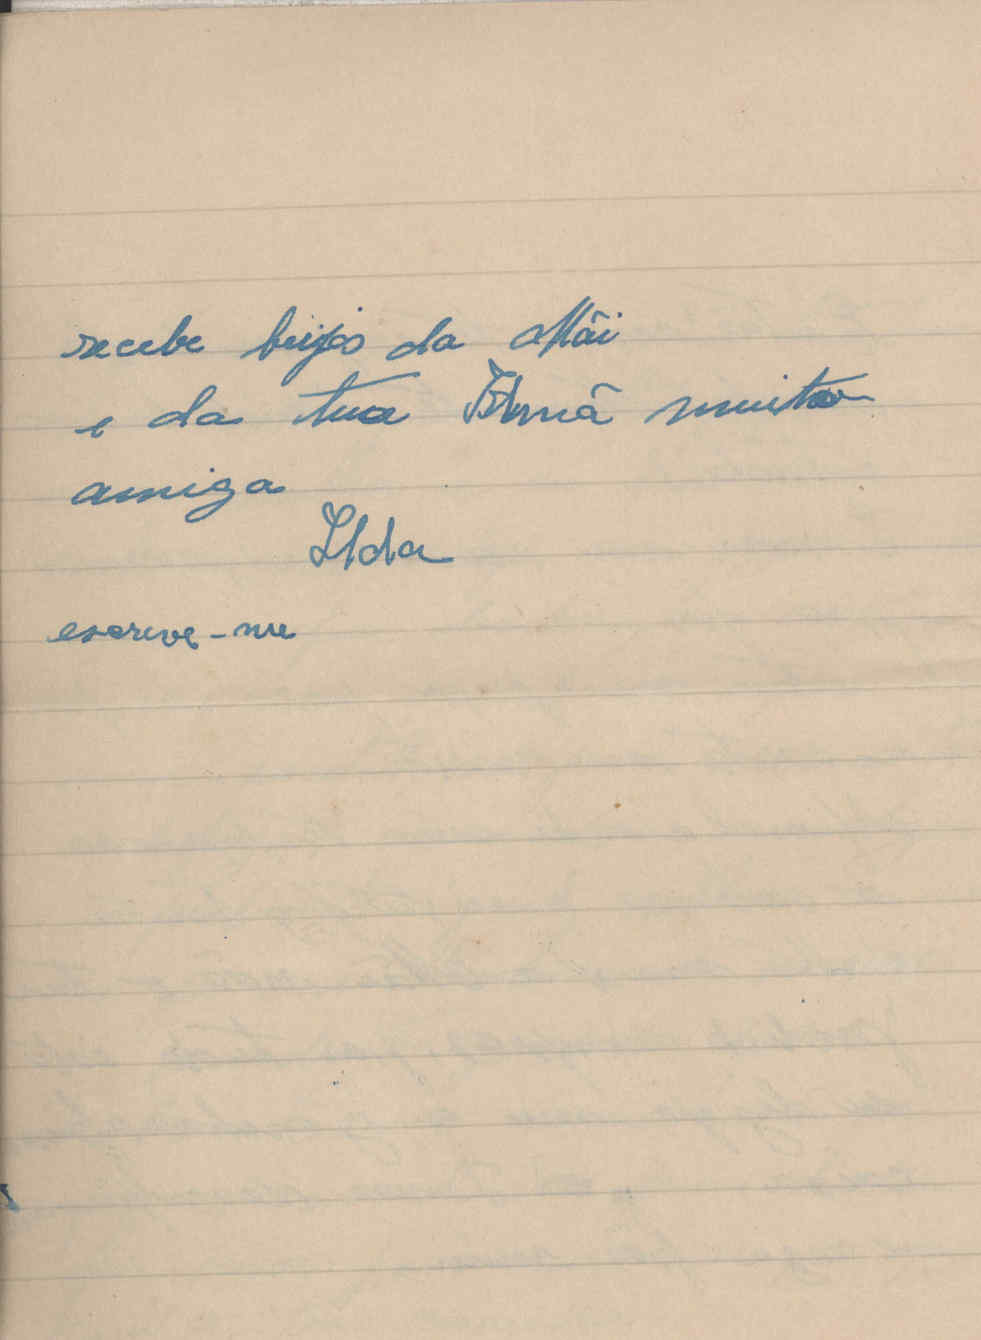 recebe beijos da Mãi
e da tua Irmã muito
amiga
Ilda
escreve-me